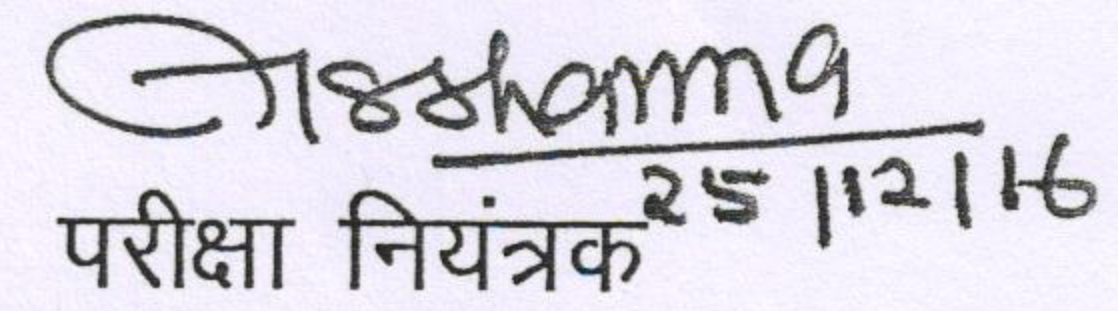 Sharma
25/12/16
परीक्षा नियंत्रक